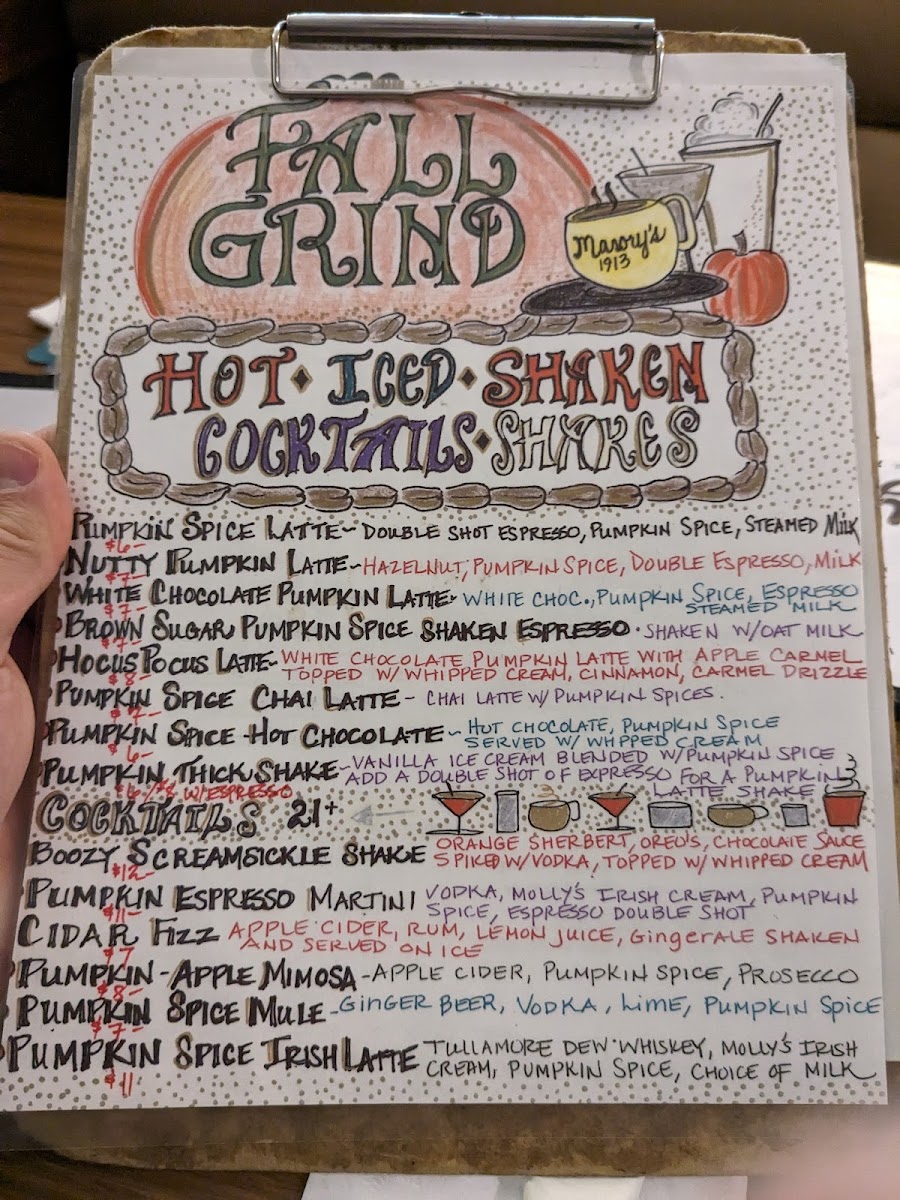 FALL
GRIND
Masory's
1913
HOT • ICED • SHAKEN
COCKTAILS • SHAKES
PUMPKIN SPICE LATTE~ DOUBLE SHOT ESPRESSO, PUMPKIN SPICE, STEAMED MILK
$6-
NUTTY PUMPKIN LATTE~HAZELNUT, PUMPKIN SPICE, DOUBLE ESPRESSO, MILK
$7-
WHITE CHOCOLATE PUMPKIN LATTE~ WHITE CHOC., PUMPKIN SPICE, ESPRESSO
STEAMED MILK
$7-
BROWN SUGAR PUMPKIN SPICE SHAKEN ESPRESSO • SHAKEN W/OAT MILK
$7-
HOCUS POCUS LATTE~ WHITE CHOCOLATE PUMPKIN LATTE WITH APPLE CARMEL
TOPPED W/ WHIPPED CREAM, CINNAMON, CARMEL DRIZZLE
$8-
PUMPKIN SPICE CHAI LATTE - CHAI LATTE W/ PUMPKIN SPICES.
PUMPKIN SPICE HOT CHOCOLATE ~ HOT CHOCOLATE, PUMPKIN SPICE
SERVED W/ WHPPED CREAM
$6-
PUMPKIN THICK SHAKE~VANILLA ICE CREAM BLENDED W/PUMPKIN SPICE
ADD A DOUBLE SHOT OF EXPRESSO FOR A PUMPKIN
LATTE SHAKE
$6/$8 W/ESPRESSO
COCKTAILS 21+
BOOZY SCREAMSICKLE SHAKE ORANGE SHERBERT, OREO'S, CHOCOLATE SAUCE
SPIKED W/VODKA, TOPPED W/ WHIPPED CREAM
$12-
PUMPKIN ESPRESSO MARTINI VODKA, MOLLY'S IRISH CREAM, PUMPKIN
SPICE, ESPRESSO DOUBLE SHOT
$11-
CIDAR FIZZ APPLE CIDER, RUM, LEMON JUICE, GINGERALE SHAKEN
AND SERVED ON ICE
$7
PUMPKIN-APPLE MIMOSA - APPLE CIDER, PUMPKIN SPICE, PROSECCO
$8-
PUMPKIN SPICE MULE - GINGER BEER, VODKA, LIME, PUMPKIN SPICE
$7-
PUMPKIN SPICE IRISH LATTE TULLAMORE DEW WHISKEY, MOLLY'S IRISH
CREAM, PUMPKIN SPICE, CHOICE OF MILK
$11